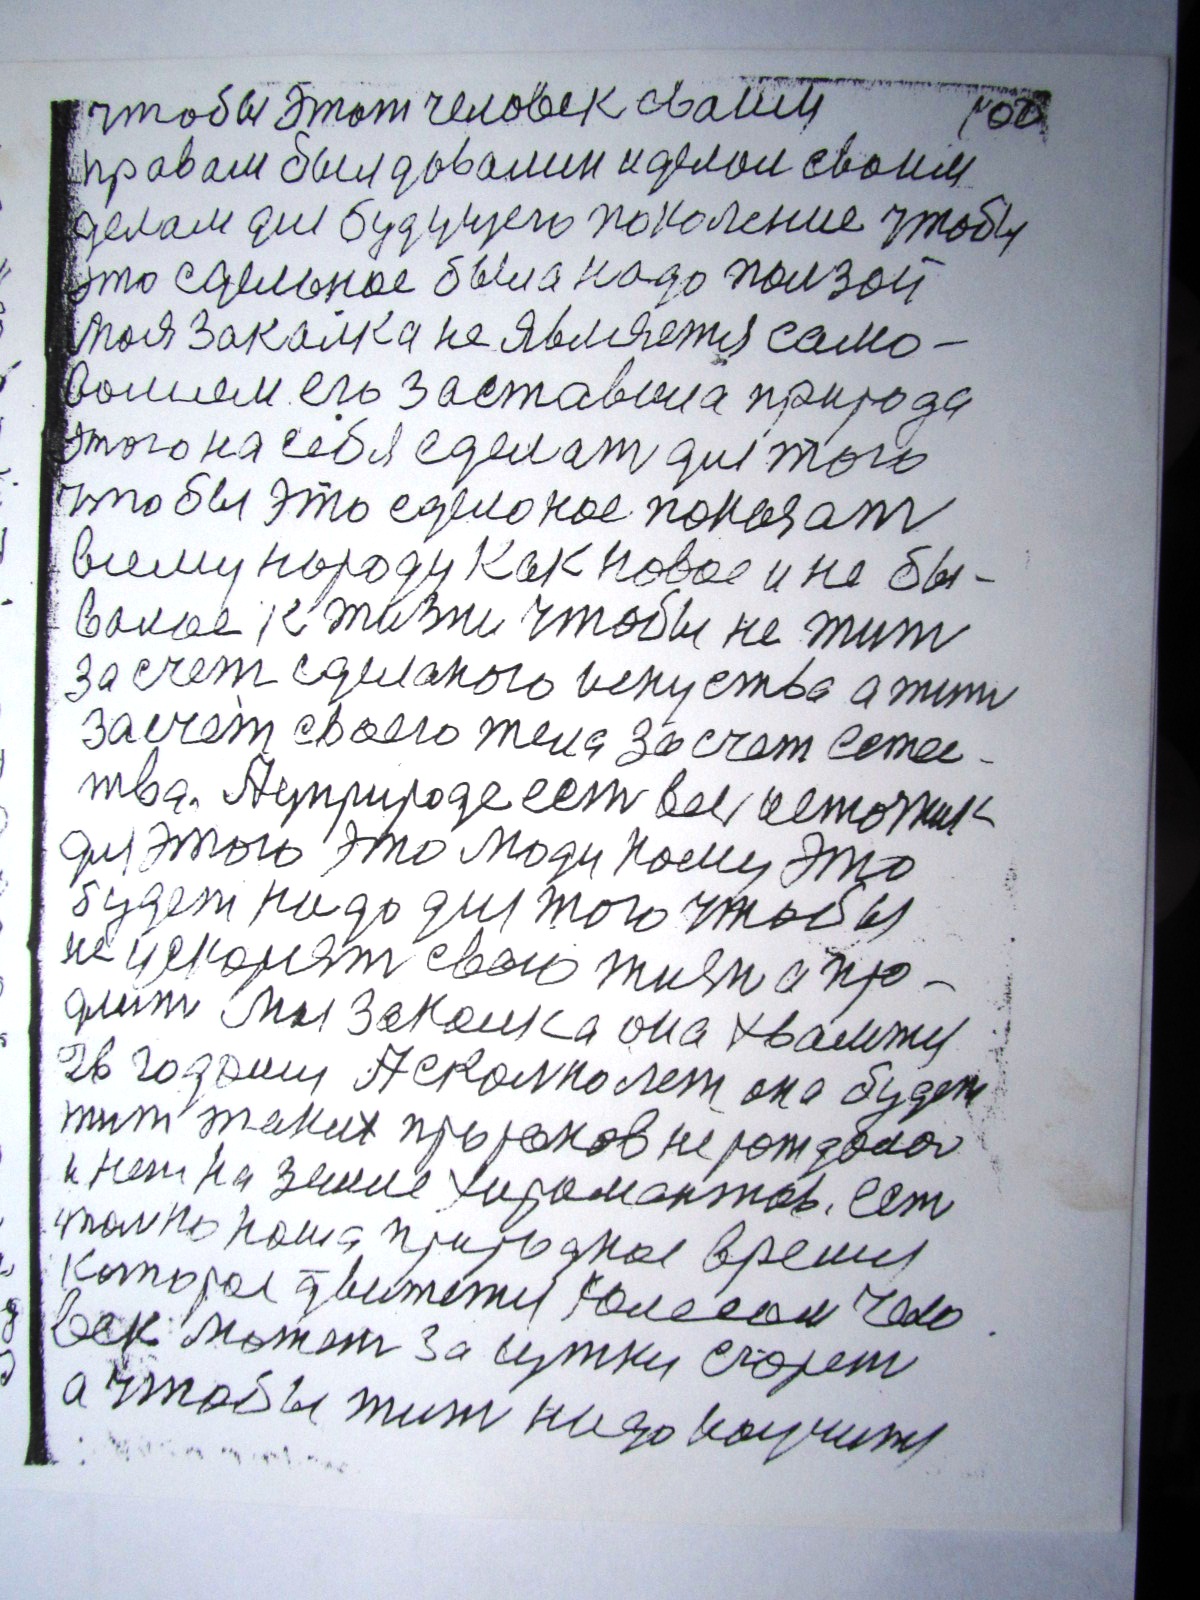 чтобы этот человек своим
правам был доволин и делол своим
делам для будущего поколение чтобы
это сделоное была надо ползой
Моя закалка не является само-
волием его заставила природа
этого на себя сделат для того
чтобы это сделоное показат
всему народу как новое и не бы-
волое к жизни чтобы не жит
за счет сделаного искуства а жит
за счет своего тела за счет естес-
тва. А у природе ест все источник
для этого это люди кому это
будет надо для того чтобы
не искорнят свою жизн а про-
длит Моя закалка она хвалитя
26 годами А сколко лет она будет
жит таких пророков не рождалос
и нет на земле хиромантов. Ест
толко наша природное время
которое движетя колесом чело
век можит за сутки сгорет
а чтобы жит надо научитя